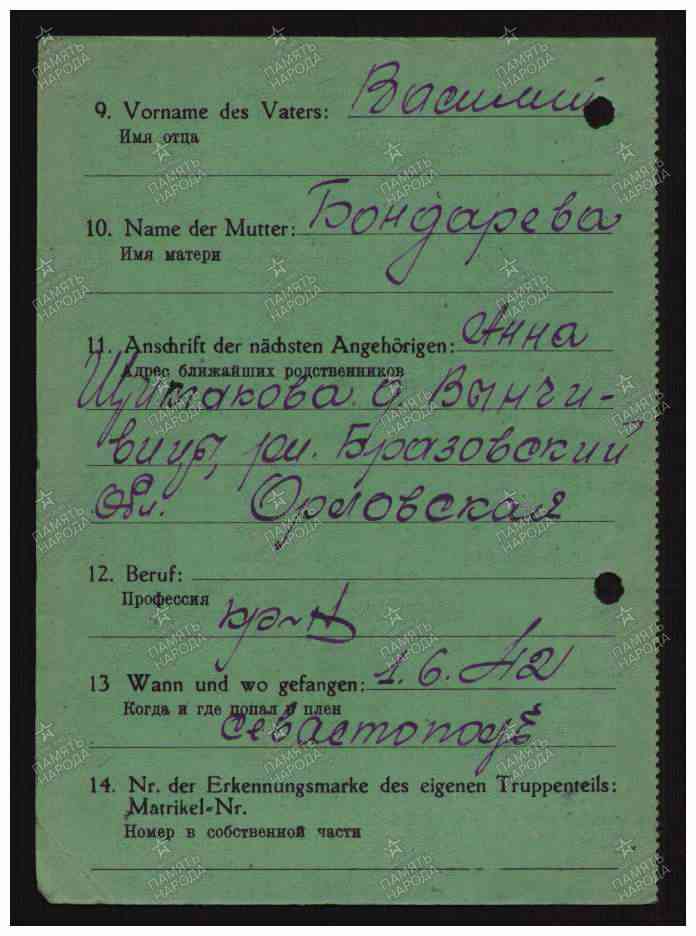 9. Vorname des Vaters: Василий
Имя отца
10. Name der Mutter: Бондарева
Имя матери
11. Anschrift der nächsten Angehörigen: Анна
Адрес ближайших родственников
Шутакова д. Вынчи-
вицы, рн. Бразовский
Обл. Орловская
12. Beruf:
Профессия
кр-н
13 Wann und wo gefangen: 1. 6. 42
Когда и где попал в плен
Севастополь
14. Nr. der Erkennungsmarke des eigenen Truppenteils:
Matrikel-Nr.
Номер в собственной части
ПАМЯТЬ НАРОДА